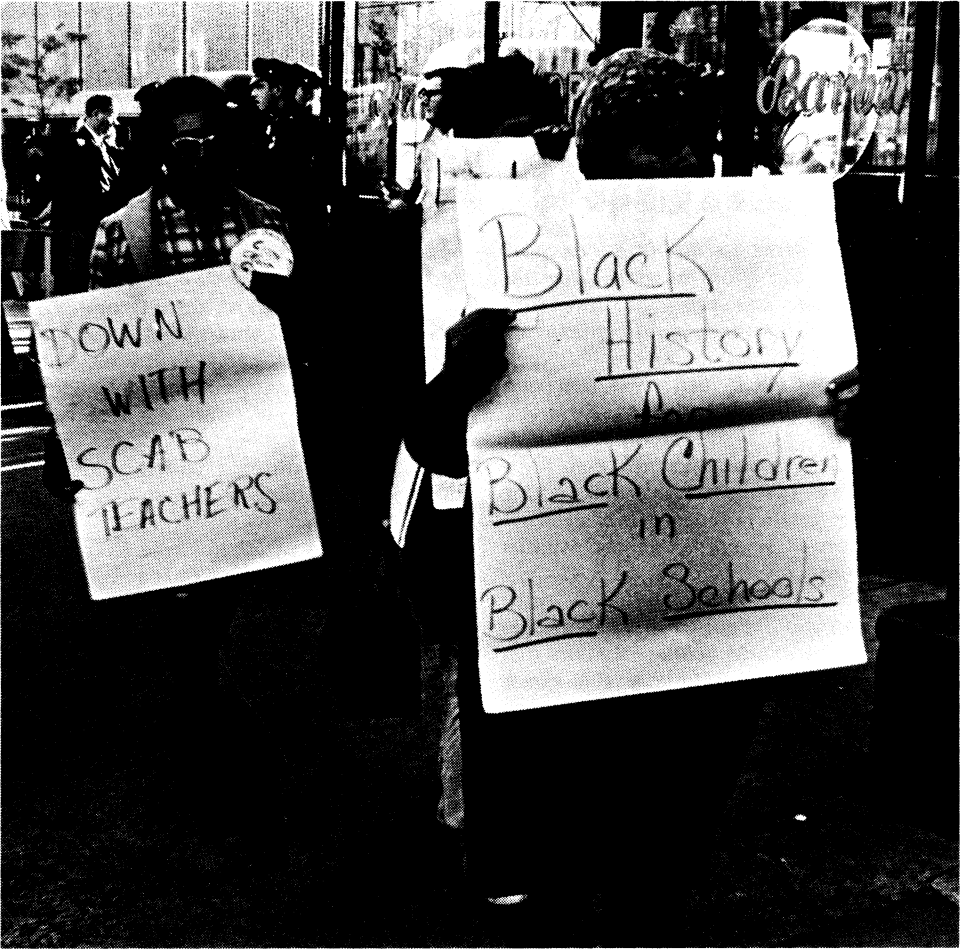 DOWN
WITH
SCAB
TEACHERS
Black
History
for
Black Children
in
Black Schools
Barber